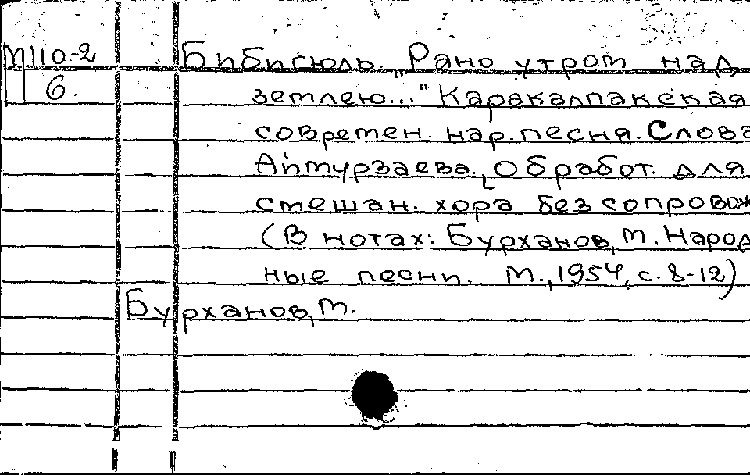 М110-2 Бибисюль. „Рано утром над
6. землею..." Каракалпакская
современ. нар. песня. Слова
Аймурзаева. [Обработ. для
смешан. хора без сопровож
(В нотах: Бурханов, М. Народ
ные песни. М., 1954, с. 8-12)
Бурханов, М.